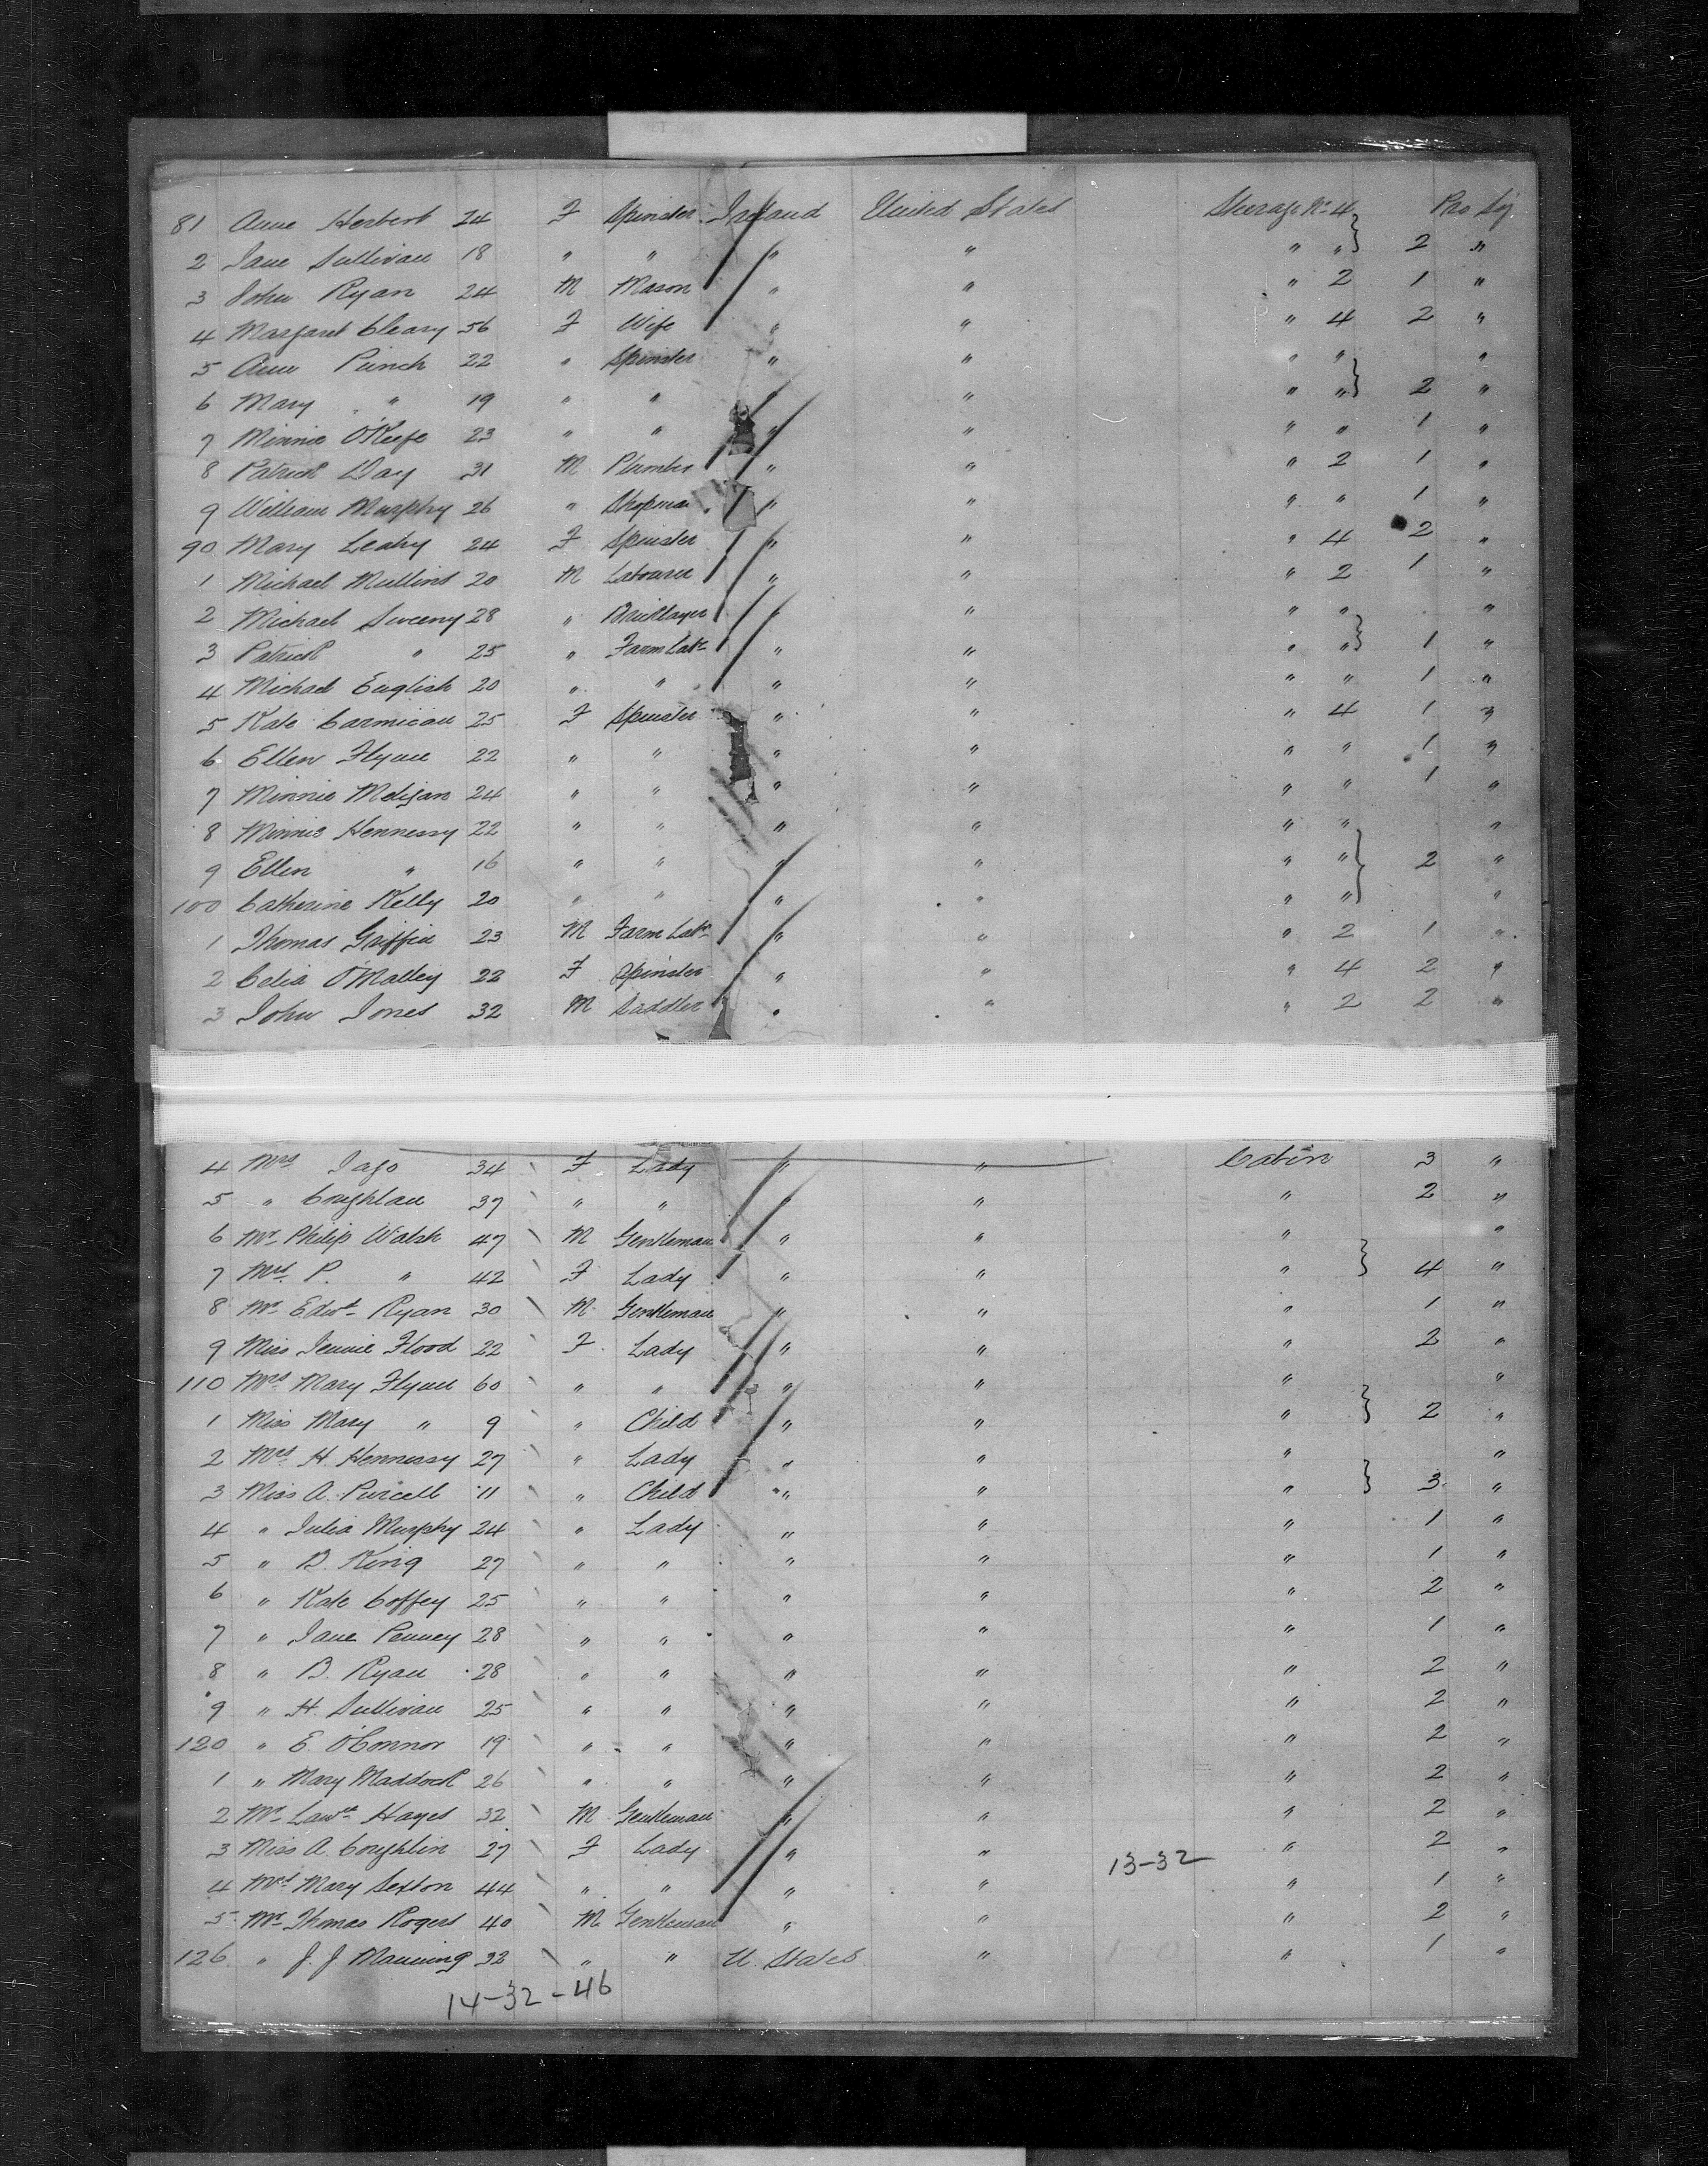 81 Anne Herbert 24 F Spinster Ireland United States Steerage No 4 Pro Sj
2 Jane Sullivan 18 " " " " " " } 2 "
3 John Ryan 24 M Mason " " " 2 1 "
4 Margaret Cleary 56 F Wife " " " 4 2 "
5 Ann Punch 22 " Spinster " " " " "
6 Mary " 19 " " " " " " } 2 "
7 Minnie O'Keefe 23 " " " " " " 1 "
8 Patrick Day 31 M Plumber " " " 2 1 "
9 William Murphy 26 " Shopman " " " " 1 "
90 Mary Leahy 24 F Spinster " " " 4 2 "
1 Michael Mullins 20 M Labourer " " " 2 1 "
2 Michael Sweeny 28 " Bricklayer " " " " "
3 Patrick " 25 " Farm Labr " " " " } 1 "
4 Michael English 20 " " " " " " 1 "
5 Kate Carmican 25 F Spinster " " " 4 1 "
6 Ellen Flynn 22 " " " " " " 1 "
7 Minnie Meligan 24 " " " " " " 1 "
8 Minnie Hennessy 22 " " " " " " "
9 Ellen " 16 " " " " " " } 2 "
100 Catherine Kelly 20 " " " " " " "
1 Thomas Griffin 23 M Farm Labr " " " 2 1 "
2 Celia O'Malley 22 F Spinster " " " 4 2 "
3 John Jones 32 M Saddler " " " 2 2 "
4 Mrs Jago 34 F Lady " " Cabin 3 "
5 " Coughlan 37 " " " " " 2 "
6 Mr Philip Walsh 47 M Gentleman " " " "
7 Mrs P. " 42 F Lady " " " } 4 "
8 Mr Edwd Ryan 30 M Gentleman " " " 1 "
9 Miss Jennie Flood 22 F Lady " " " 2 "
110 Mrs Mary Flynn 60 " " " " " "
1 Miss Mary " 9 " Child " " " } 2 "
2 Mrs H. Hennessy 27 " Lady " " " "
3 Miss A. Purcell 11 " Child " " " } 3 "
4 " Julia Murphy 24 " Lady " " " 1 "
5 " B. King 27 " " " " " 1 "
6 " Kate Coffey 25 " " " " " 2 "
7 " Jane Penney 28 " " " " " 1 "
8 " B. Ryan 28 " " " " " 2 "
9 " H. Sullivan 25 " " " " " 2 "
120 " E. O'Connor 19 " " " " " 2 "
1 " Mary Maddock 26 " " " " " 2 "
2 Mr Lawce Hayes 32 M Gentleman " " " 2 "
3 Miss A. Coughlin 27 F Lady " " 13-32 " 2 "
4 Mrs Mary Sexton 44 " " " " " 1 "
5 Mr Thomas Rogers 40 M Gentleman " " " 2 "
126 " J. J. Manning 32 " " U. States " " 1 "
14-32-46